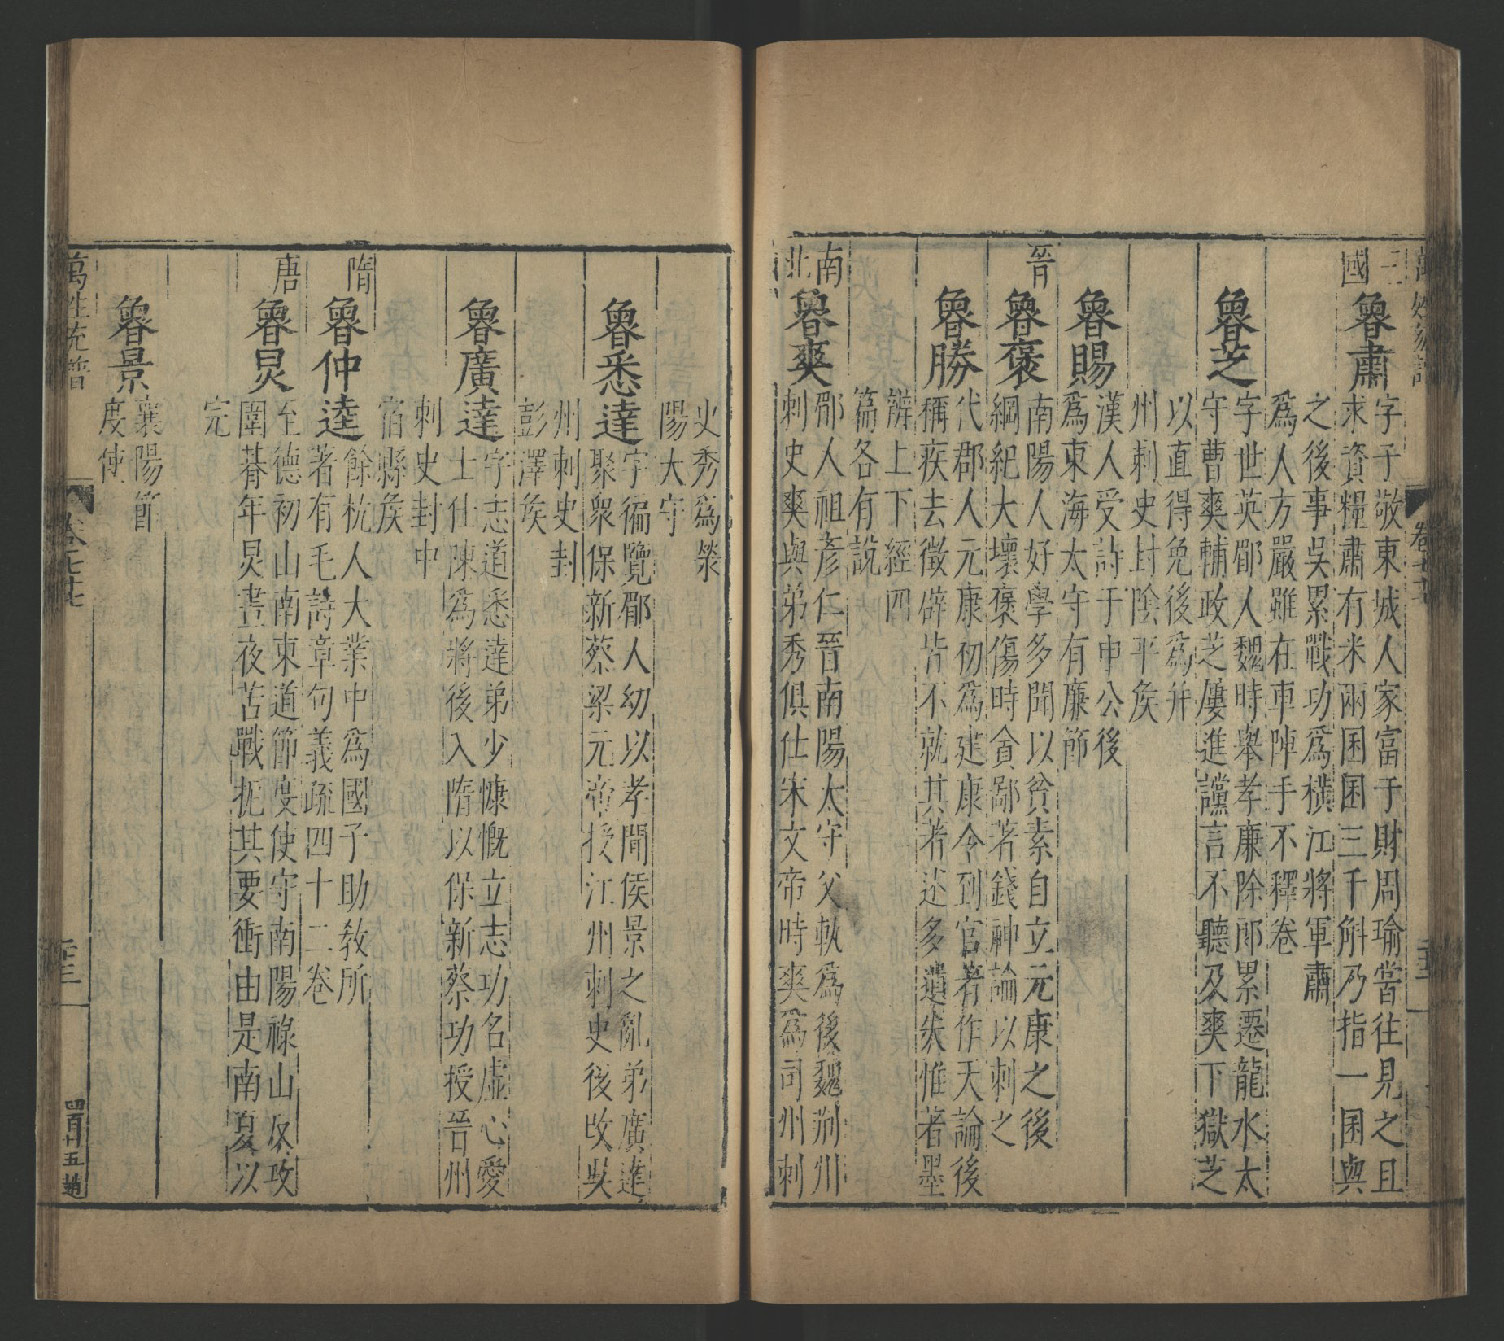 三國
魯肅
字子敬東城人家富于財周瑜嘗往見之且
求資糧肅有米兩囷囷三千斛乃指一囷與
之後事吳累戰功爲横江將軍肅
爲人方嚴雖在軍陣手不釋卷
魯芝
字世英郿人魏時舉孝廉除郎累遷龍水太
守曹爽輔政芝屢進讜言不聽及爽下獄芝
以直得免後爲并
州刺史封陰平侯
魯賜
漢人受詩于申公後
爲東海太守有廉節
晉
魯褒
南陽人好學多聞以貧素自立元康之後
綱紀大壞褒傷時貪鄙著錢神論以刺之
魯勝
代郡人元康初爲建康令到官著作天論後
稱疾去徵辟皆不就其著述多遺失惟著墨
辯上下經四
篇各有說
南北
魯爽
郿人祖彥仁晉南陽太守父軌爲後魏荆州
刺史爽與弟秀俱仕宋文帝時爽爲司州刺
史秀爲滎
陽太守
魯悉達
字徧覽郿人幼以孝聞侯景之亂弟廣達
聚衆保新蔡梁元帝授江州刺史後攺吳
州刺史封
彭澤侯
魯廣達
字志道悉達弟少慷慨立志功名虛心愛
士仕陳爲將後入隋以保新蔡功授晉州
刺史封中
宿縣侯
隋
魯仲達
餘杭人大業中爲國子助敎所
著有毛詩章句義疏四十二卷
唐
魯炅
至德初山南東道節度使守南陽祿山反攻
圍朞年炅晝夜苦戰扼其要衝由是南夏以
完
魯景
襄陽節
度使
萬姓统譜
四百廿五